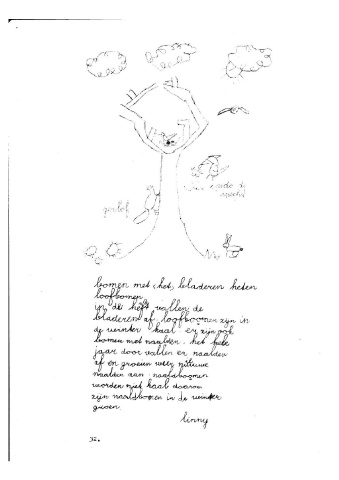 gerlof
specht
bomen met het bladeren heten
loofbomen
in de heft vallen de
bladeren af loofboomen zijn in
de winter kaal er zijn ook
bomen met naalden het hele
jaar door vallen er naalden
af en groeien weer nieuwe
naalden aan naaldboomen
worden niet kaal daarom
zijn naaldboomen in de winter
groen
linny
32.